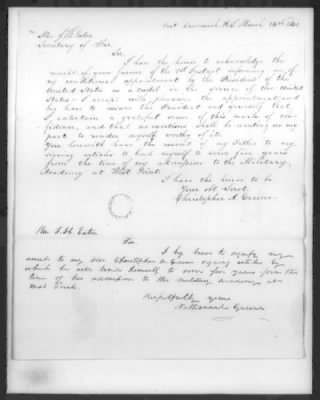 East Greenwich, R.I. March 14th 1831
Mr. J. H. Eaton
Secretary of War.
Sir,
I have the honor to acknowledge the
receipt of your favour of the informing me of
my conditional appointment by the President of the
United States as a cadet in the service of the United
States — I accept with pleasure the appointment and
beg leave to assure the President and yourself that
I entertain a grateful sense of this mark of con-
fidence, and that no exertions shall be wanting on my
part to render myself worthy of it.
You herewith have the assent of my Father to my
signing articles to bind myself to serve five years
from the time of my admission to the Military
Academy at West Point.
I have the honor to be
Your obt. Servt.
Christopher A. Greene.
Mr. J. H. Eaton
Sir
I beg leave to signify my
assent to my son Christopher A. Greene signing articles by
which he will bind himself to serve five years from the
time of his admission to the military academy at
West Point.
Respectfully yours
Nathaniel Greene